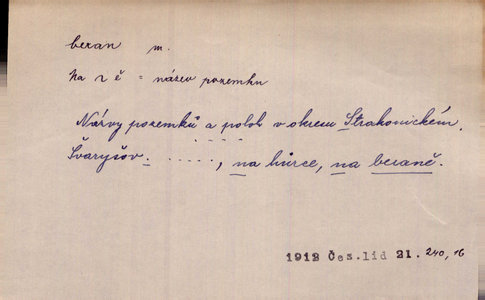 beran m.
na ~ ě = název pozemku
Názvy pozemků a poloh v okresu Strakonickém.
Švaryšov. ....., na hůrce, na beraně.
1912 Čes.lid 21. 240, 16